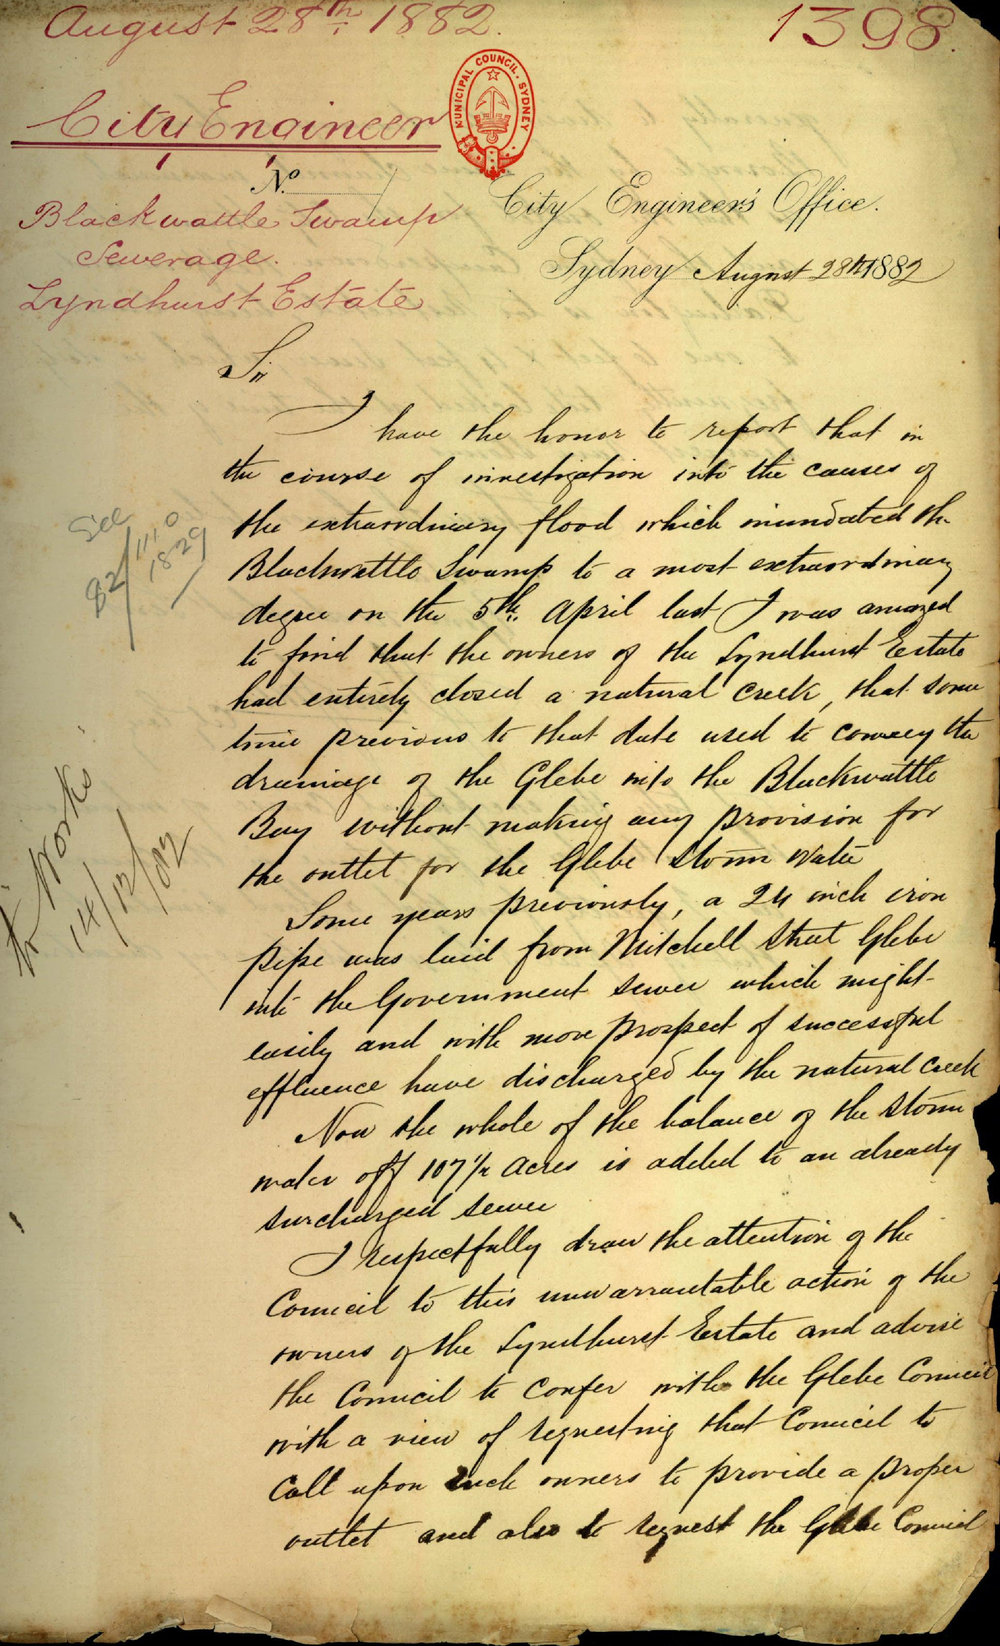 August 28th 1882.
1398.
City Engineer
MUNICIPAL COUNCIL. SYDNEY
No
Blackwattle Swamp
Sewerage.
Lyndhurst Estate
City Engineer's Office.
Sydney August 28th 1882
Sir
I have the honor to report that in
the course of investigation into the causes of
the extraordinary flood which inundated the
Blackwattle Swamp to a most extraordinary
degree on the 5th. April last I was amazed
to find that the owners of the Lyndhurst Estate
had entirely closed a natural Creek, that some
time previous to that date used to convey the
drainage of the Glebe into the Blackwattle
Bay without making any provision for
the outlet for the Glebe Storm Water
Some years previously, a 24 inch iron
pipe was laid from Mitchell Street Glebe
into the Government Sewer which might
easily and with more prospect of successful
effluence have discharged by the natural Creek
Now the whole of the balance of the Storm
water off 107½ Acres is added to an already
surcharged sewer
I respectfully draw the attention of the
Council to this unwarrantable action of the
owners of the Lyndhurst Estate and advise
the Council to confer with the Glebe Council
with a view of requesting that Council to
Call upon such owners to provide a proper
outlet and also to request the Glebe Council
See
82/1110
1829
Works
14/12/82